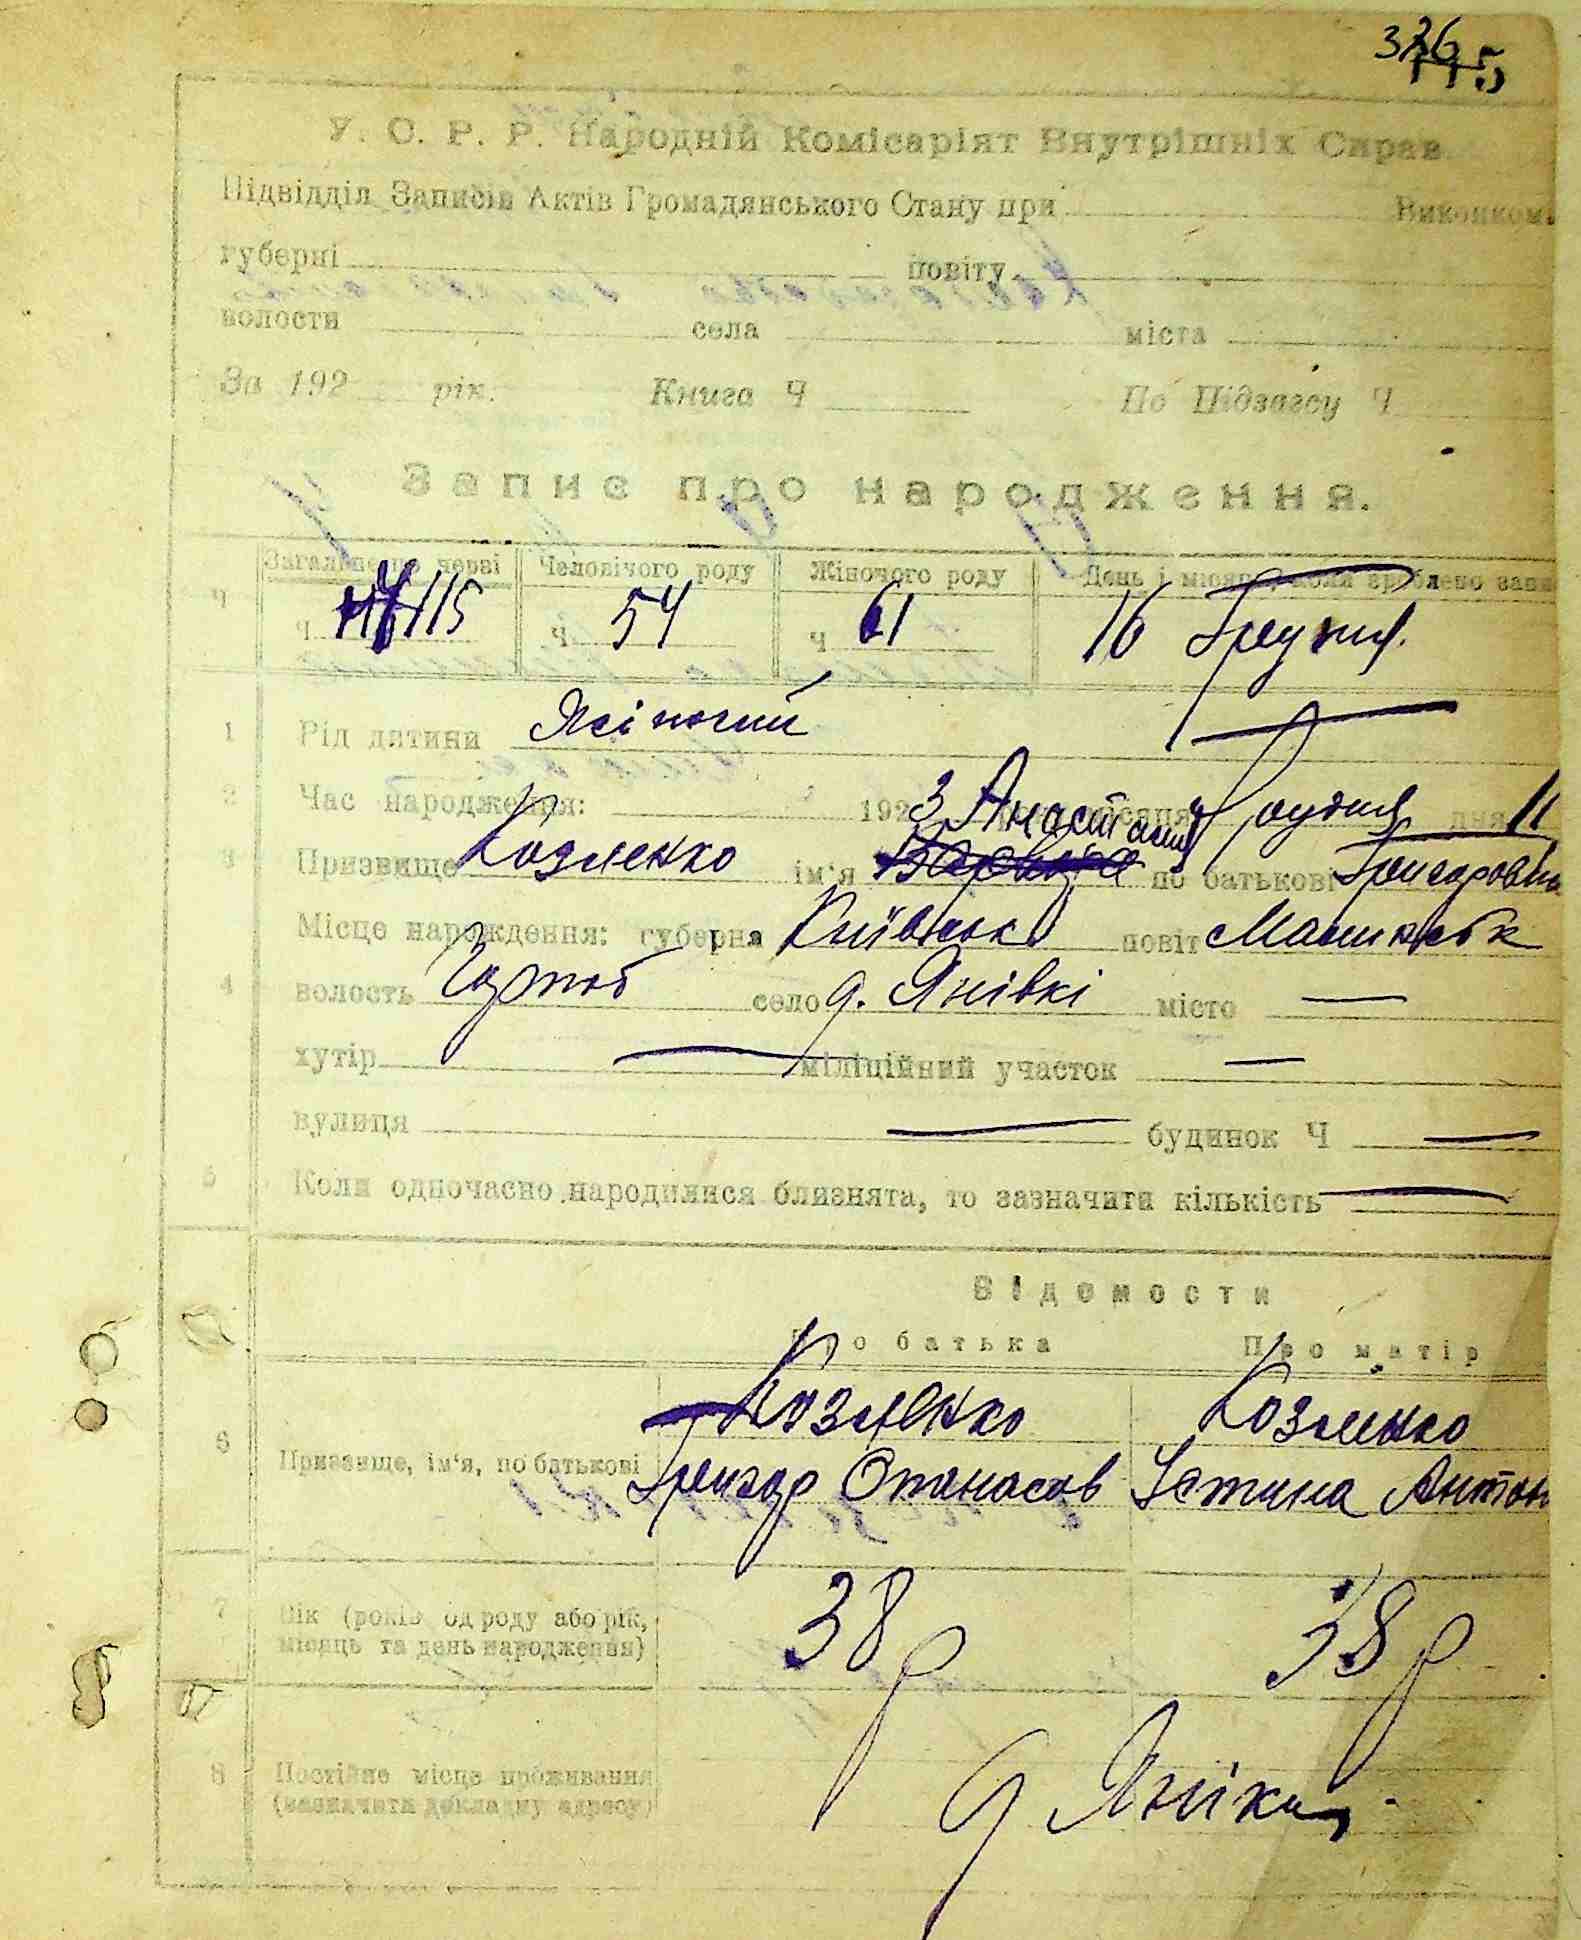 326
У. С. Р. Р. Народній Комісаріят Внутрішніх Справ
Підвідділ Записів Актів Громадянського Стану при Виконком.
губерні повіту
волости села міста
За 192 рік. Книга Ч По Підзагсу Ч
Запис про народження.
Загальне Человічого роду Жіночого роду День і місяць, коли зроблено запис
Ч Ч 115 Ч 54 Ч 61 16 Грудня
1 Рід дитини Жіночий
2 Час народження: 1923 місяця Грудня дня 11
Анастасия
3 Призвище Козленко ім'я по батькові Григоровна
Місце народження: губерня Київськ повіт
4 волость село д. Янівкі місто —
хутір — міліційний участок —
вулиця — будинок Ч —
5 Коли одночасно народилися близнята, то зазначити кількість —
Відомости
Про батька Про матір
Козленко Козленко
6 Призвище, ім'я, по батькові Григор Опанасов Устина Антон
7 Вік (років од роду або рік, 38 р 38 р
місяць та день народження)
8 Постійне місце проживання д
(зазначити докладну адресу)